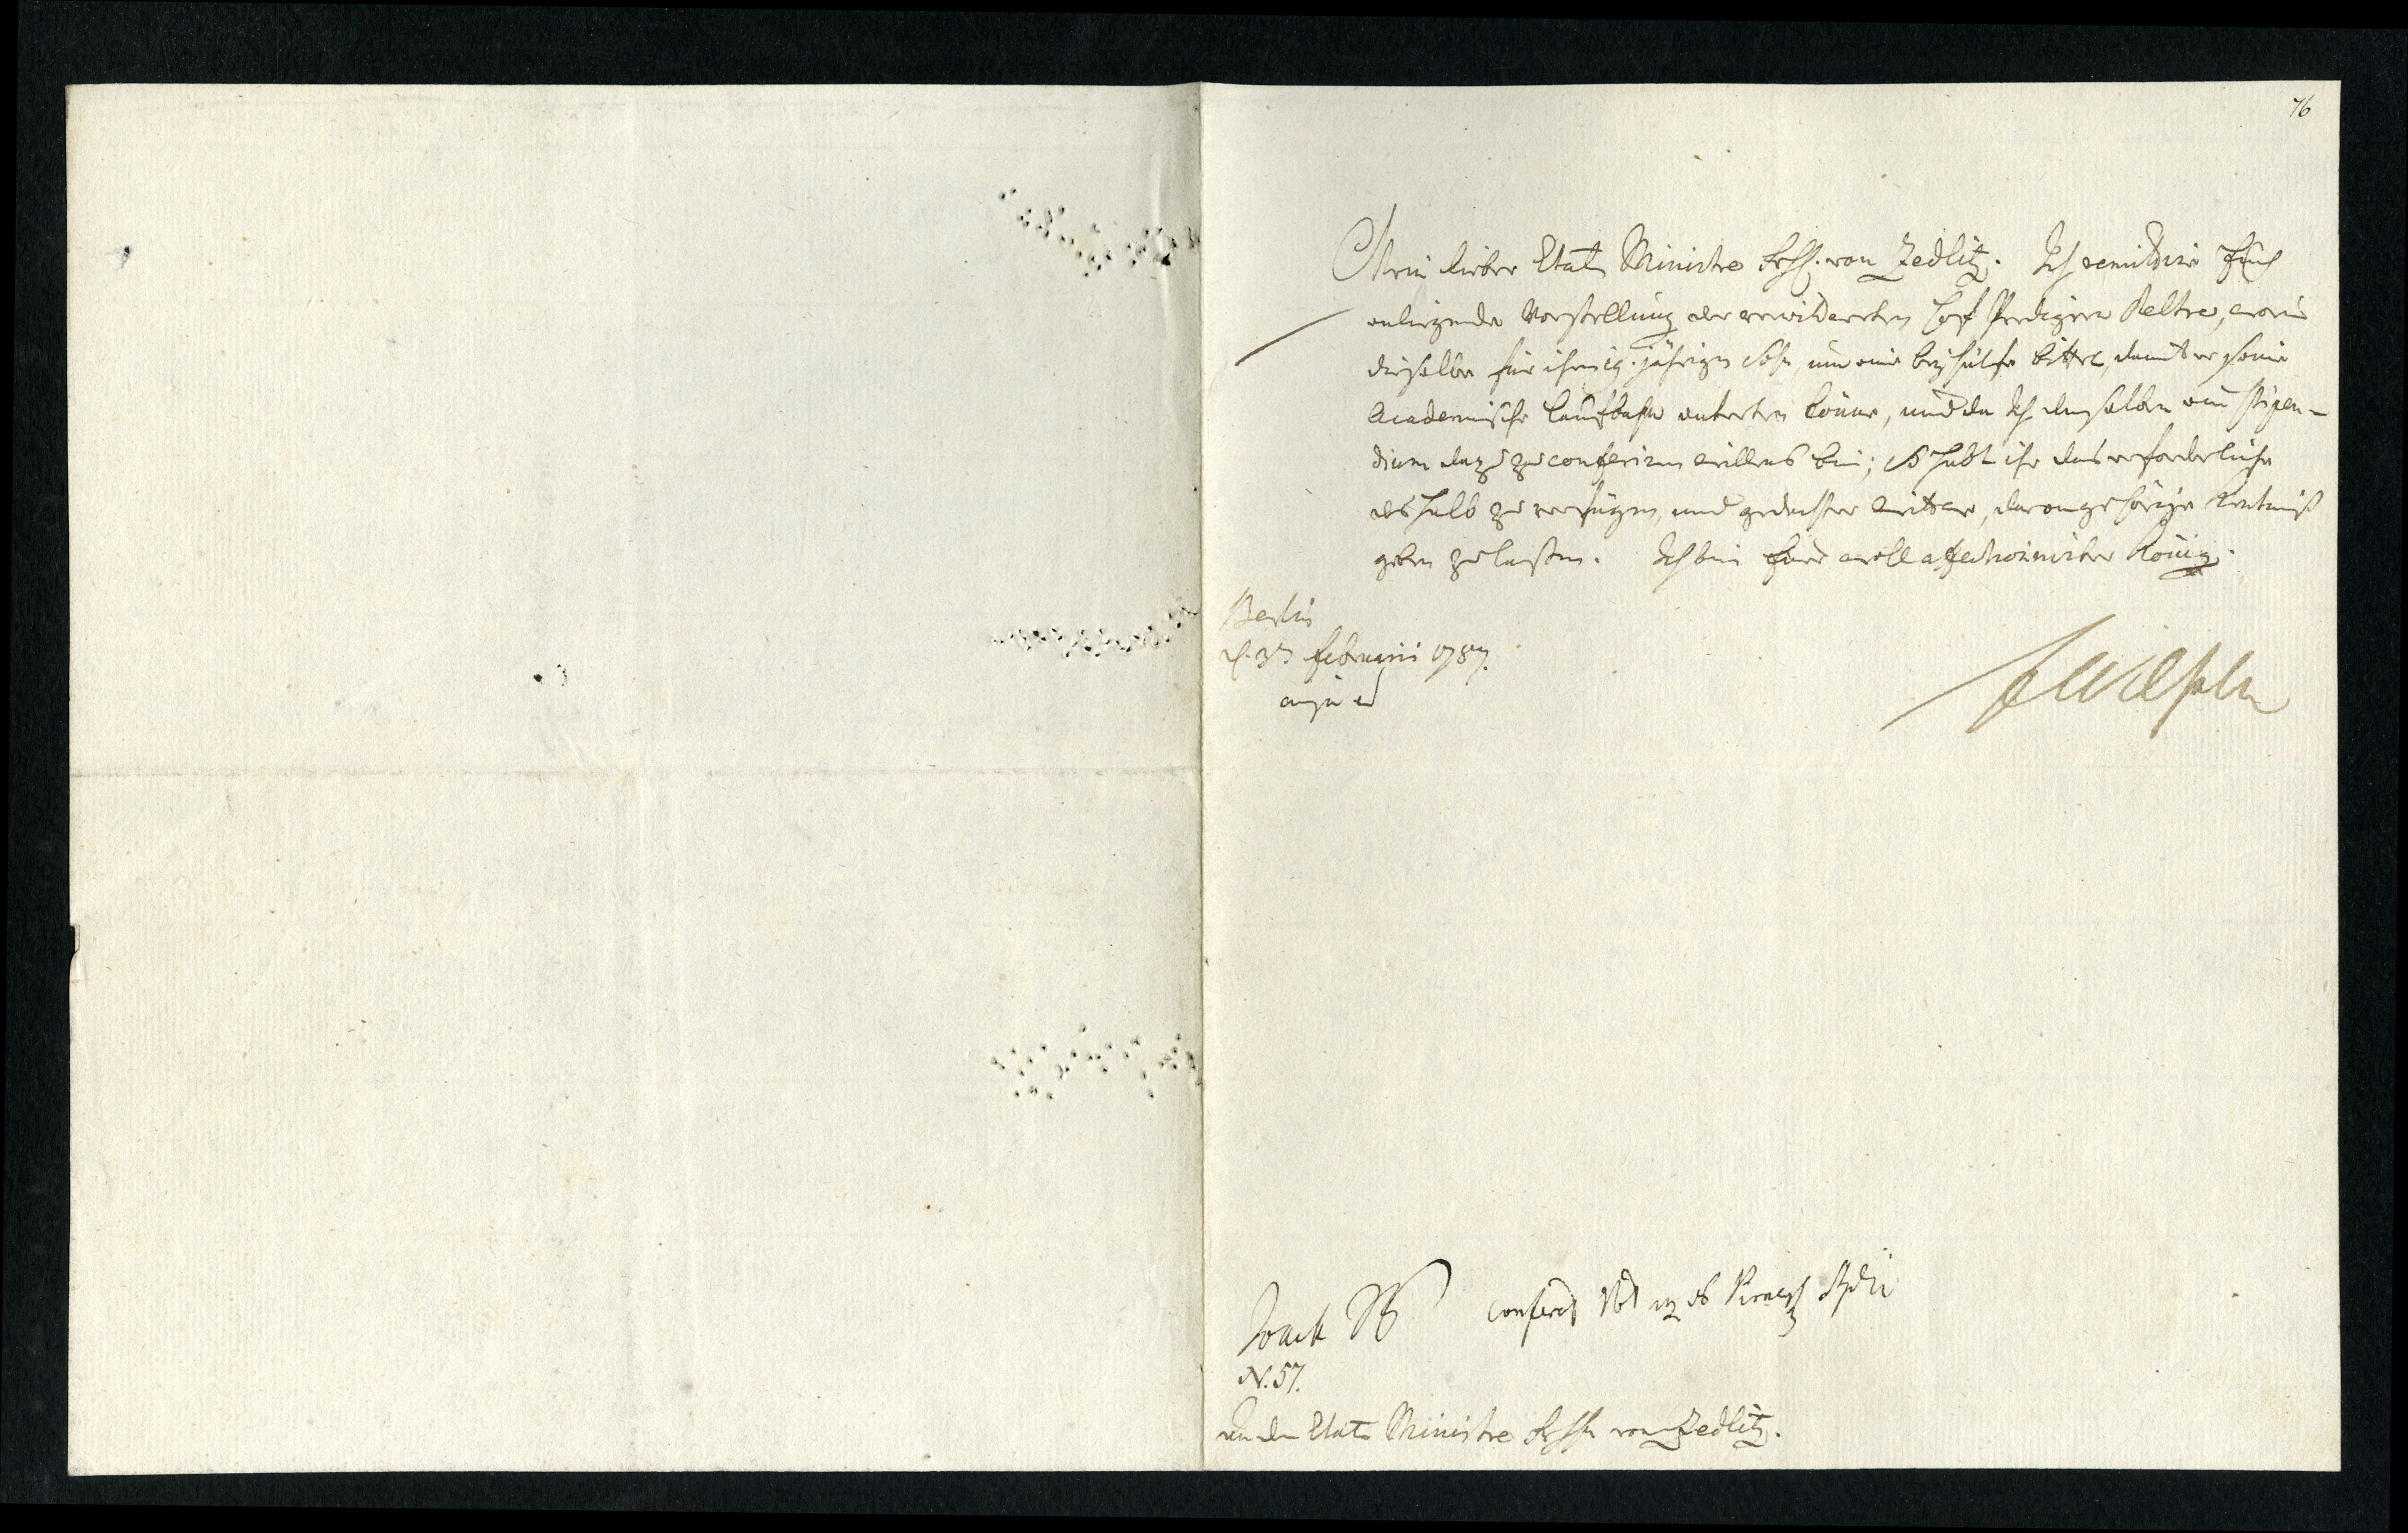 76
Mein lieber Etats Ministre Frhh. von Zedlitz. Ich remittire Euch
anliegende Vorstellung der verwittweten Hof Predigern Reltre, worin
dieselbe für ihren 19. jährigen Sohn, um eine beyhülfe bittet, damit er seine
Academische Laufbahn antreten könne, und da Ich demselben ein Stipen-
dium dazu zu conferiren willens bin; So habt ihr das erforderliche
deshalb zu verfügen, und gedachter Wittwe, davon gehörige Kentniß
geben zu laßen. Ich bin Euer wohl affectionirter König.
Berlin
d. 3ten Februarii 1787.
FWilhelm
conferat
N. 57.
An den Etats Ministre Frhh von Zedlitz.